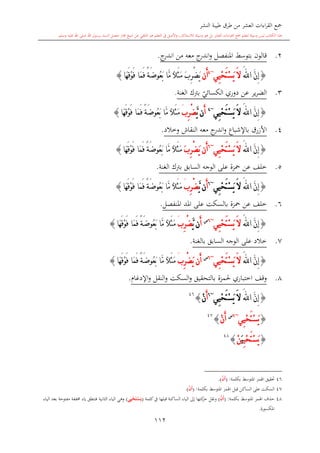 جمع القراءات العشر من طرق طيبة النشر
٢. قالون بتوسط المنفصل واندرج معه من اندرج.
﴿ إِنَّ اللَّهَ لَا يَسْتَحْيِي أَنْ يَضْرِبَ مَثَلًا مَا بَعُوضَةً فَمَا فَوْقَهَا ﴾
٣. الضرير عن دوري الكسائي بترك الغنة.
﴿ إِنَّ اللَّهَ لَا يَسْتَحْيِي أَنْ يَضْرِبَ مَثَلًا مَا بَعُوضَةً فَمَا فَوْقَهَا ﴾
٤. الأزرق بالإشباع واندرج معه النقاش وخلاد.
﴿ إِنَّ اللَّهَ لَا يَسْتَحْيِي أَنْ يَضْرِبَ مَثَلًا مَا بَعُوضَةً فَمَا فَوْقَهَا ﴾
٥. خلف عن حمزة على الوجه السابق بترك الغنة.
﴿ إِنَّ اللَّهَ لَا يَسْتَحْيِي أَنْ يَضْرِبَ مَثَلًا مَا بَعُوضَةً فَمَا فَوْقَهَا ﴾
٦. خلف عن حمزة بالسكت على المد المنفصل.
﴿ إِنَّ اللَّهَ لَا يَسْتَحْيِي أَنْ يَضْرِبَ مَثَلًا مَا بَعُوضَةً فَمَا فَوْقَهَا ﴾
٧. خلاد على الوجه السابق بالغنة.
﴿ إِنَّ اللَّهَ لَا يَسْتَحْيِي أَنْ يَضْرِبَ مَثَلًا مَا بَعُوضَةً فَمَا فَوْقَهَا ﴾
٨. وقف اختباري لحمزة بالتحقيق والسكت والنقل والإدغام.
﴿ إِنَّ اللَّهَ لَا يَسْتَحْيِي أَنْ ﴾ ٤٦
﴿ يَسْتَحْيِي أَنْ ﴾ ٤٧
﴿ يَسْتَحْيِيَنْ ﴾ ٤٨
٤٦ تحقيق الهمز المتوسط بكلمة: (أَنْ).
٤٧ السكت على الساكن قبل الهمز المتوسط بكلمة: (أَنْ).
٤٨ حذف الهمز المتوسط بكلمة: (أَنْ) ونقل حركتها إلى الياء الساكنة قبلها في كلمة (يَسْتَحْيِي) وهي الياء الثانية فتنطق ياء مخففة مفتوحة بعد الياء
المكسورة.
١١٢